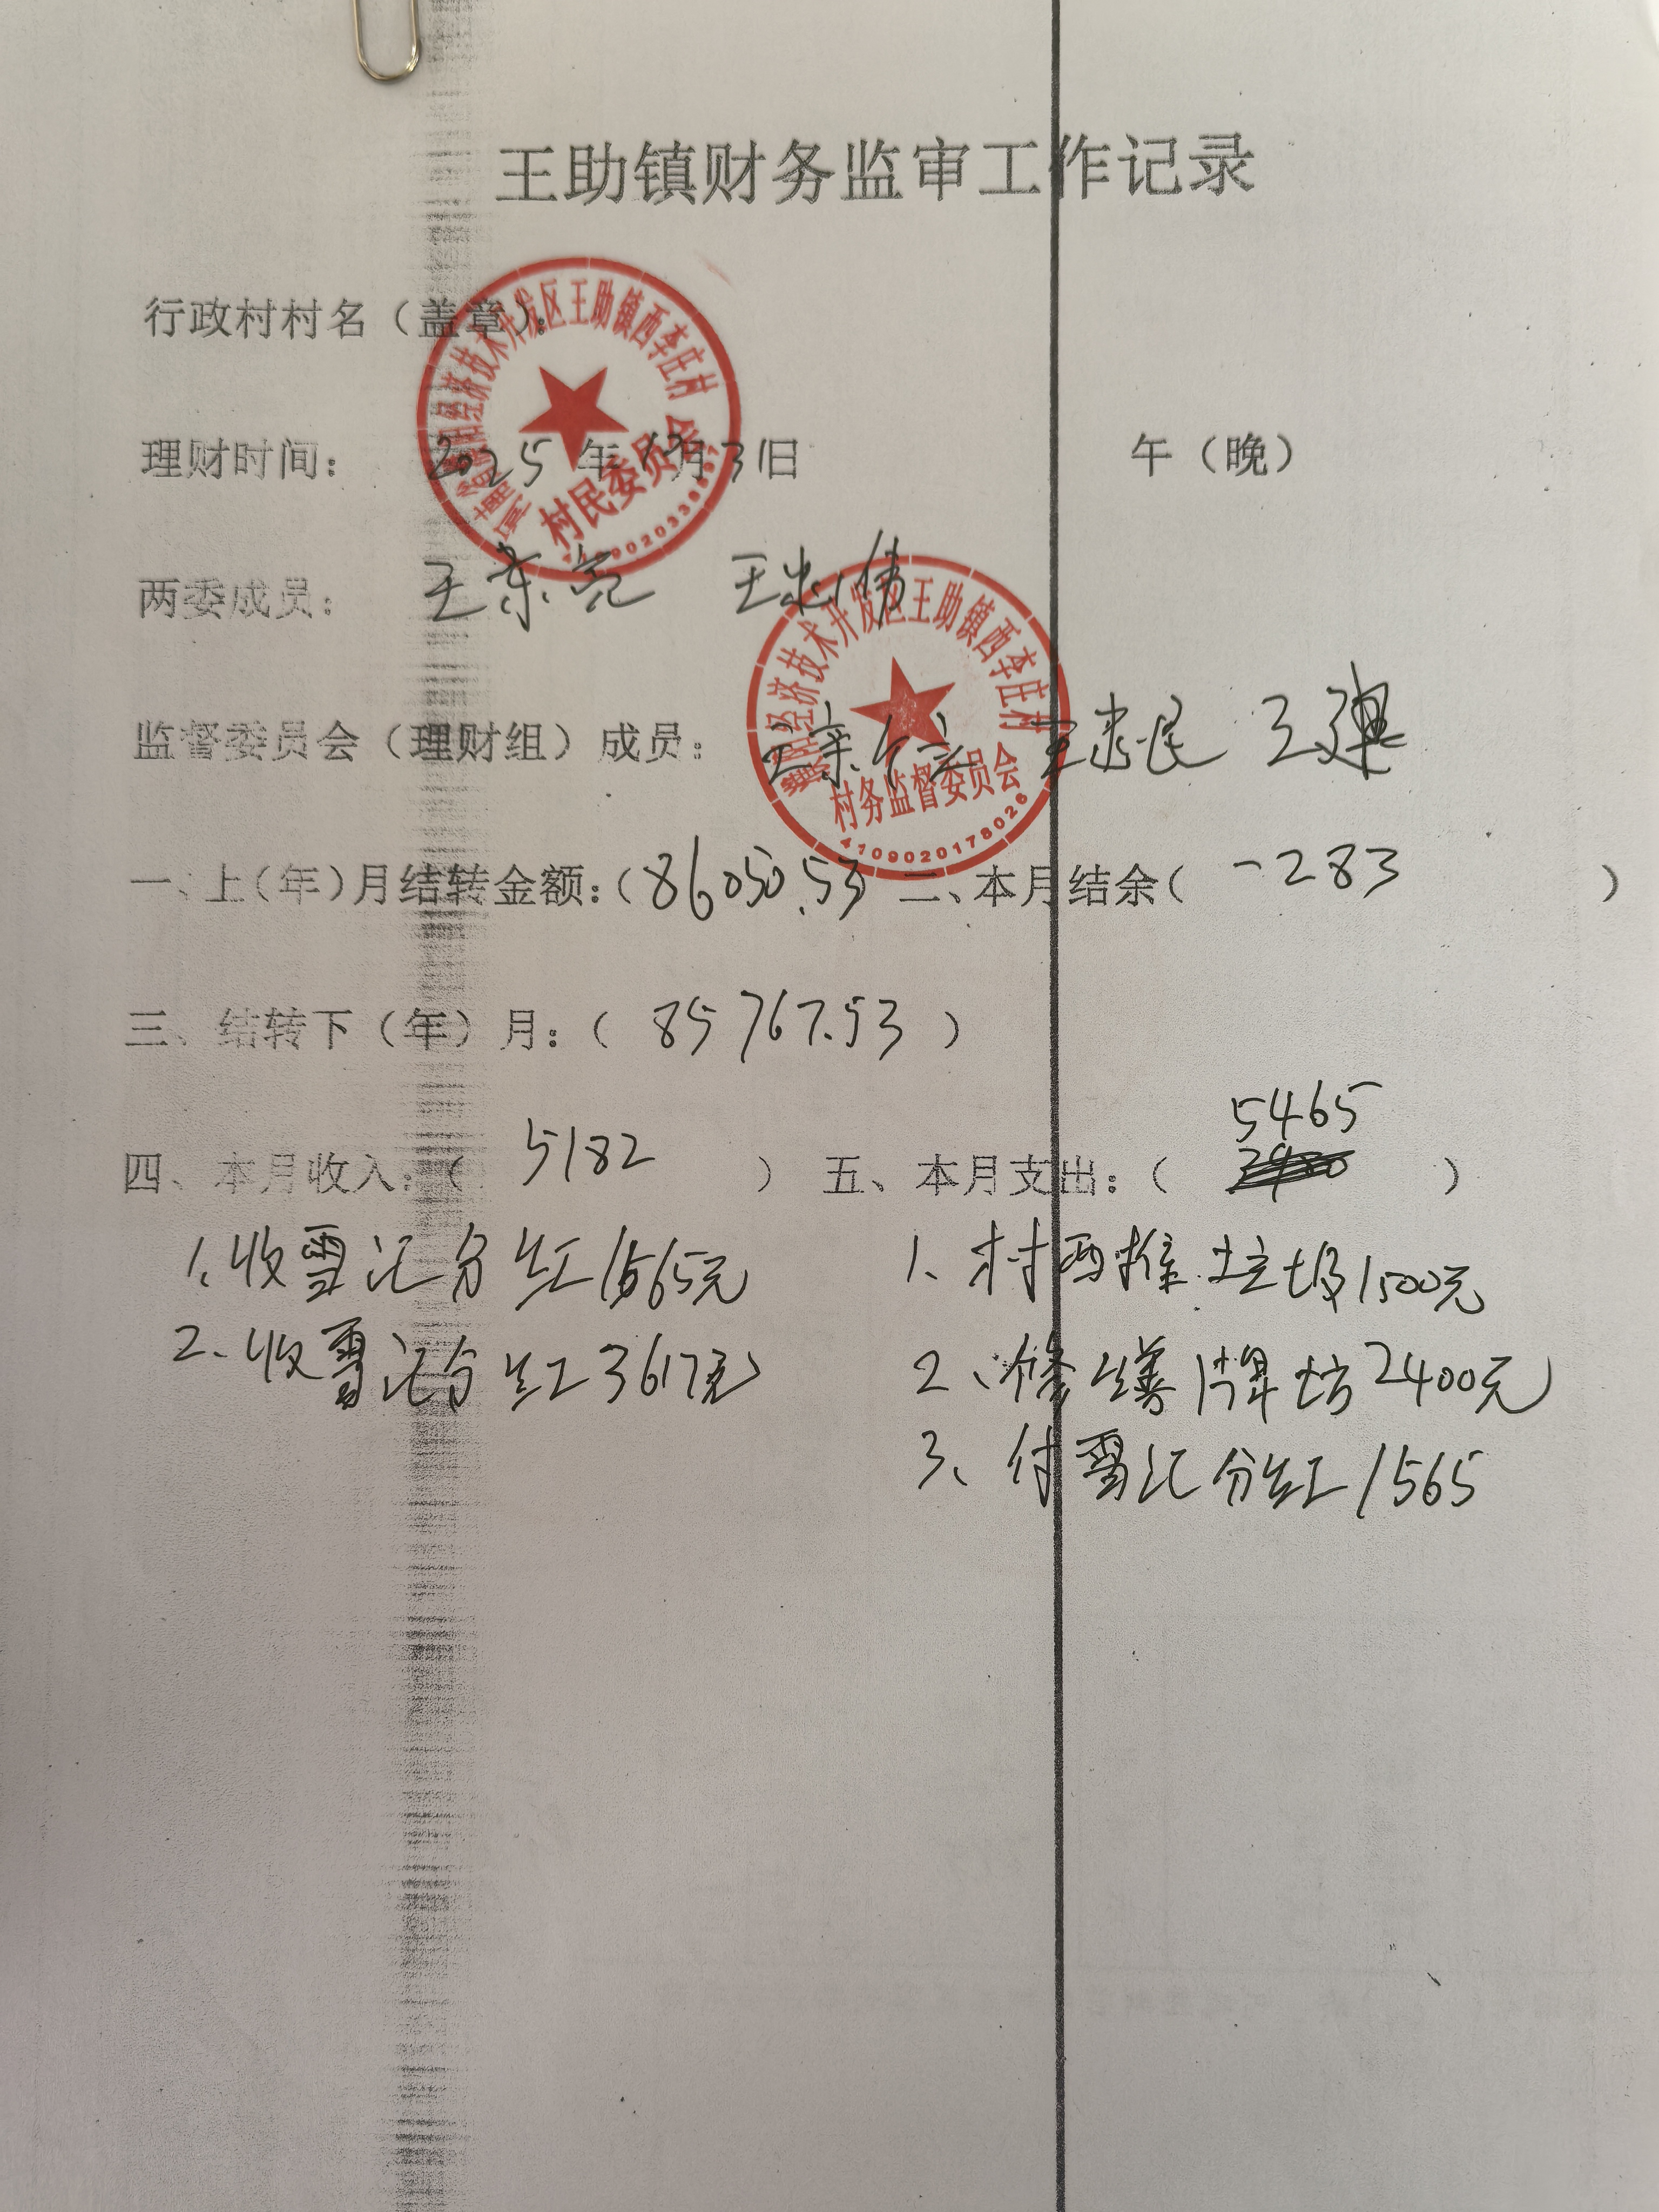 王助镇财务监审工作记录
行政村村名（盖章）：
经济技术开发区王助镇西李庄村
村民委员会
理财时间： 2025 年 月 3 日 午（晚）
两委成员： 王景亮 王忠伟
经济技术开发区王助镇西李庄村
村务监督委员会
4109020178026
监督委员会（理财组）成员： 王忠民 王
一、上（年）月结转金额：（86050.53 二、本月结余（ -283 ）
三、结转下（年）月：（ 85767.53 ）
四、本月收入：（ 5182 ） 五、本月支出：（ 5465 ）
1、收雪汇分红1565元 1、村西推垃圾1500元
2、收雪汇分红3617元 2、修缮牌坊2400元
3、付雪汇分红1565